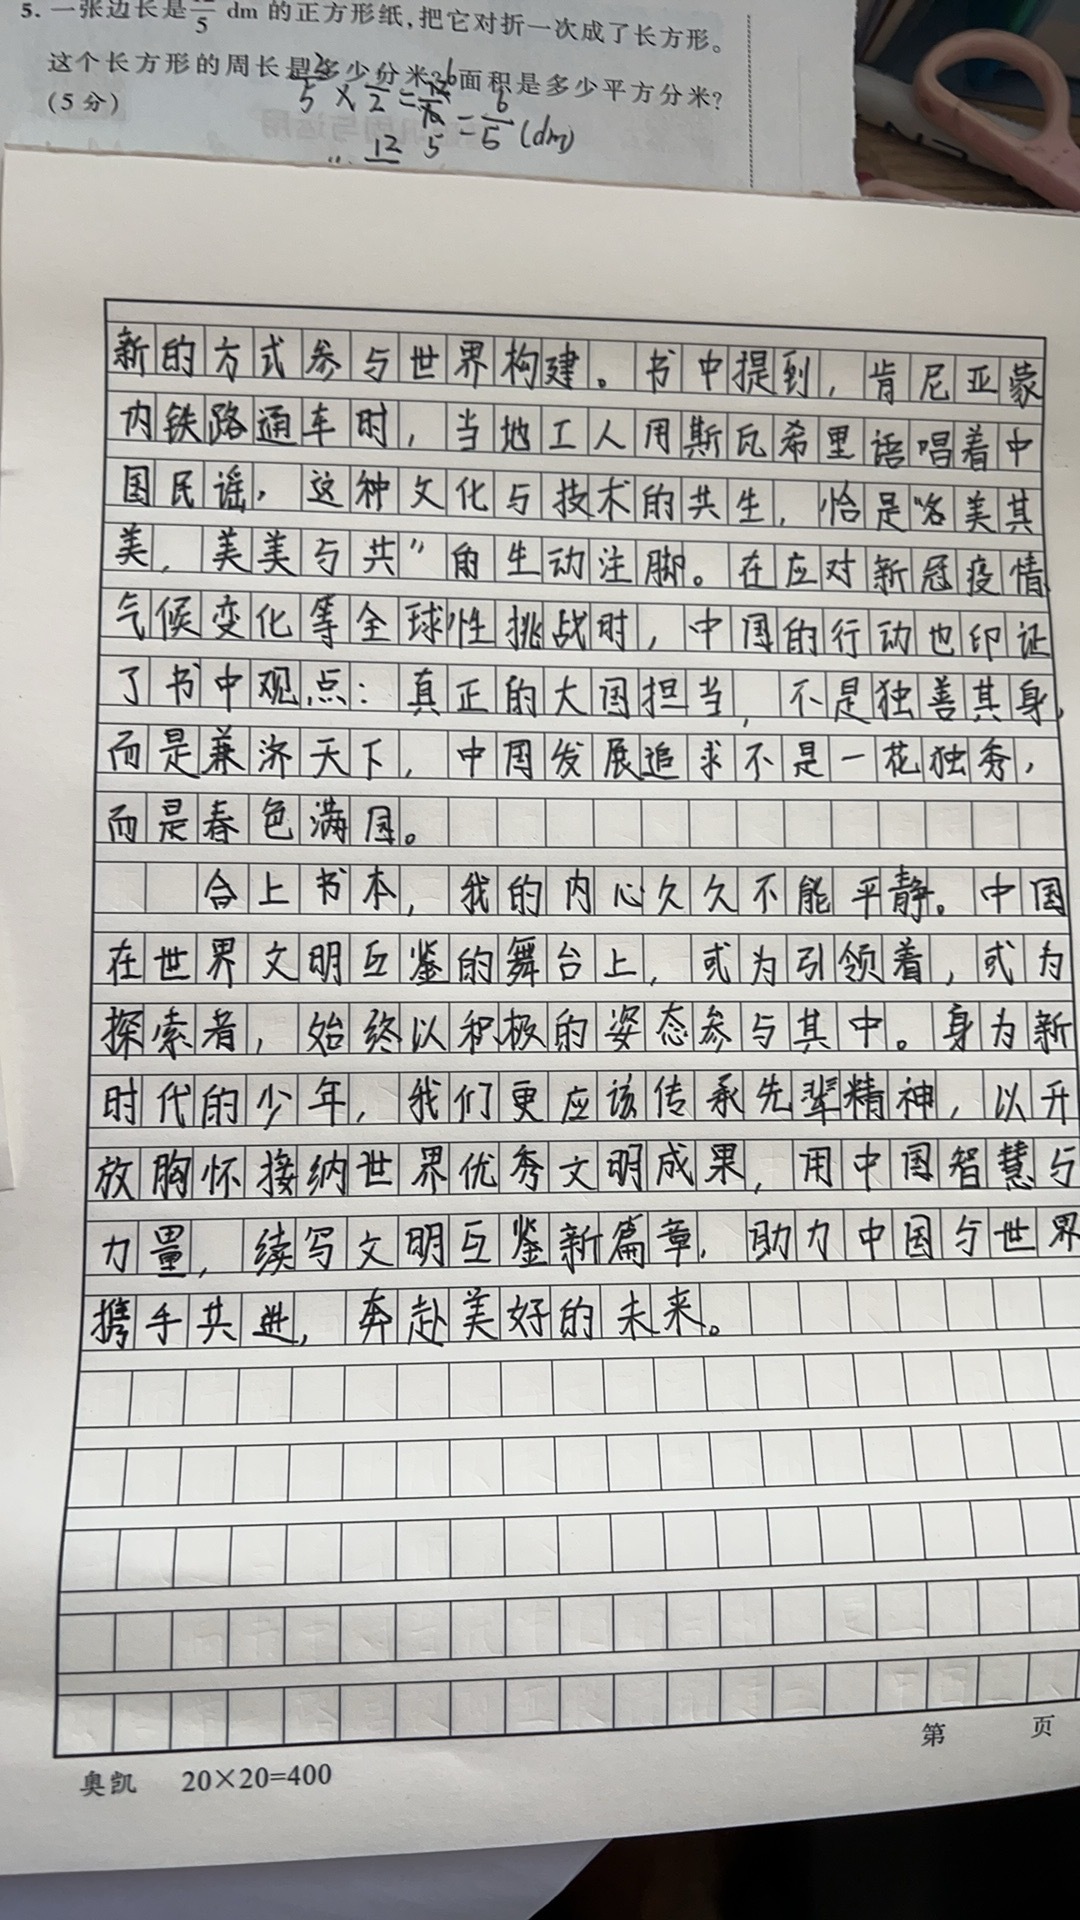 5. 一张边长是 /5 dm 的正方形纸,把它对折一次成了长方形。
这个长方形的周长是多少分米?面积是多少平方分米?
(5分)
= 6/5 (dm)
12
新的方式参与世界构建。书中提到,肯尼亚蒙
内铁路通车时,当地工人用斯瓦希里语唱着中
国民谣,这种文化与技术的共生,恰是“各美其
美,美美与共”的生动注脚。在应对新冠疫情
气候变化等全球性挑战时,中国的行动也印证
了书中观点:真正的大国担当,不是独善其身,
而是兼济天下,中国发展追求不是一花独秀,
而是春色满园。
合上书本,我的内心久久不能平静。中国
在世界文明互鉴的舞台上,或为引领着,或为
探索者,始终以积极的姿态参与其中。身为新
时代的少年,我们更应该传承先辈精神,以开
放胸怀接纳世界优秀文明成果,用中国智慧与
力量,续写文明互鉴新篇章,助力中国与世界
携手共进,奔赴美好的未来。
第 页
奥凯 20×20=400